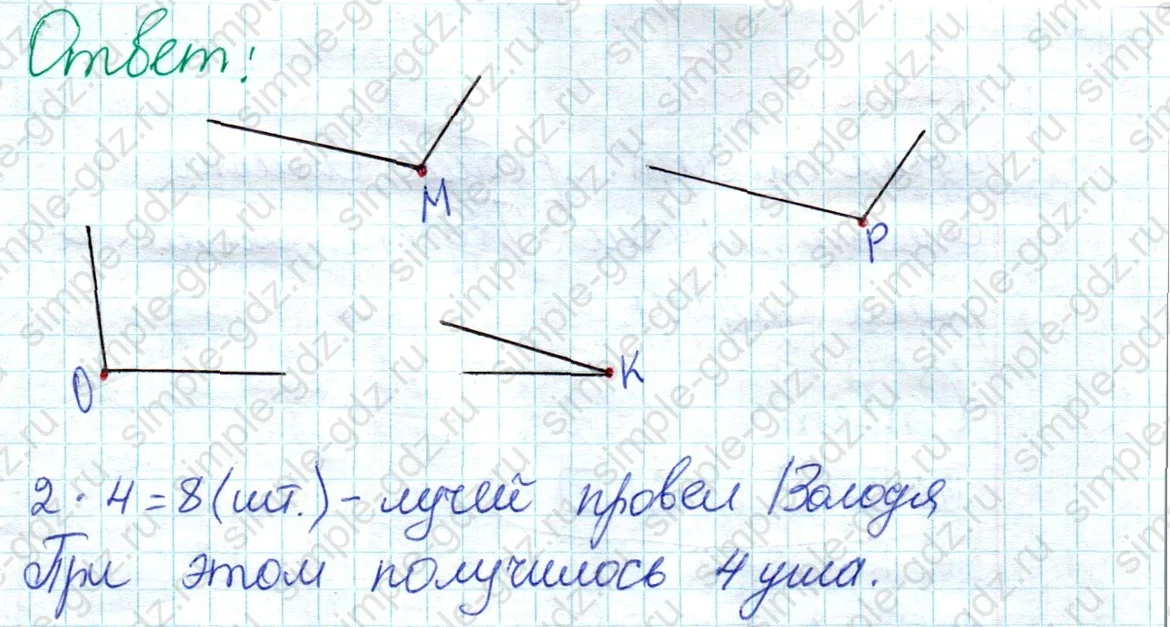 Ответ:
М
Р
О
К
2 · 4 = 8 (шт.) – лучей провел Володя
При этом получилось 4 угла.
simple-gdz.ru